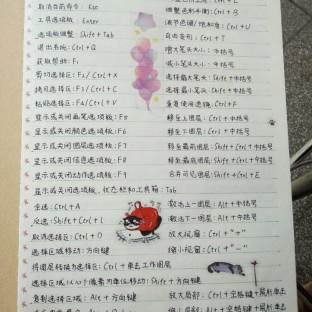 取消当前命令: Esc
工具选项板: Enter
选项板调整: Shift + Tab
退出系统: Ctrl + Q
获取帮助: F1
剪切选择区: F2 / Ctrl + X
拷贝选择区: F3 / Ctrl + C
粘贴选择区: F4 / Ctrl + V
显示或关闭画笔选项板: F5
显示或关闭颜色选项板: F6
显示或关闭图层选项板: F7
显示或关闭信息选项板: F8
显示或关闭动作选项板: F9
显示或关闭选项板、状态栏和工具箱: Tab
全选: Ctrl + A
反选: Shift + Ctrl + I
取消选择区: Ctrl + D
选择区域移动: 方向键
将图层转换为选择区: Ctrl + 单击工作图层
选择区域以10个像素为单位移动: Shift + 方向键
复制选择区域: Alt + 方向键
调整色彩平衡: Ctrl + B
调节色调/饱和度: Ctrl + U
自由变形: Ctrl + T
增大笔头大小: 中括号
减小笔头大小: 中括号
选择最大笔头: Shift + 中括号
选择最小笔头: Shift + 中括号
重复使用滤镜: Ctrl + F
移至上一图层: Ctrl + 中括号
移至下一图层: Ctrl + 中括号
移至最前图层: Shift + Ctrl + 中括号
移至最底图层: Shift + Ctrl + 中括号
合并可见图层: Shift + Ctrl + E
激活上一图层: Alt + 中括号
激活下一图层: Alt + 中括号
放大视窗: Ctrl + "+"
缩小视窗: Ctrl + "-"
放大局部: Ctrl + 空格键 + 鼠标单击